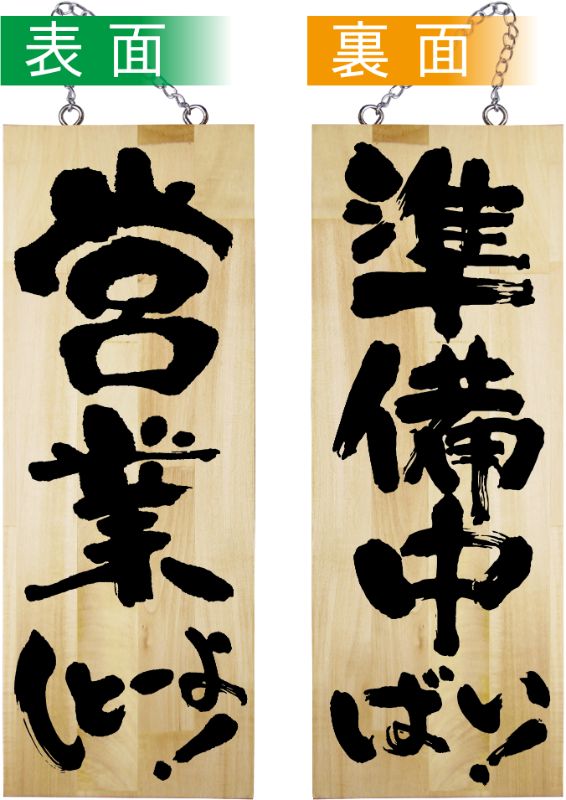 表面
営業
しとーよ!
裏面
準備中
ばい!